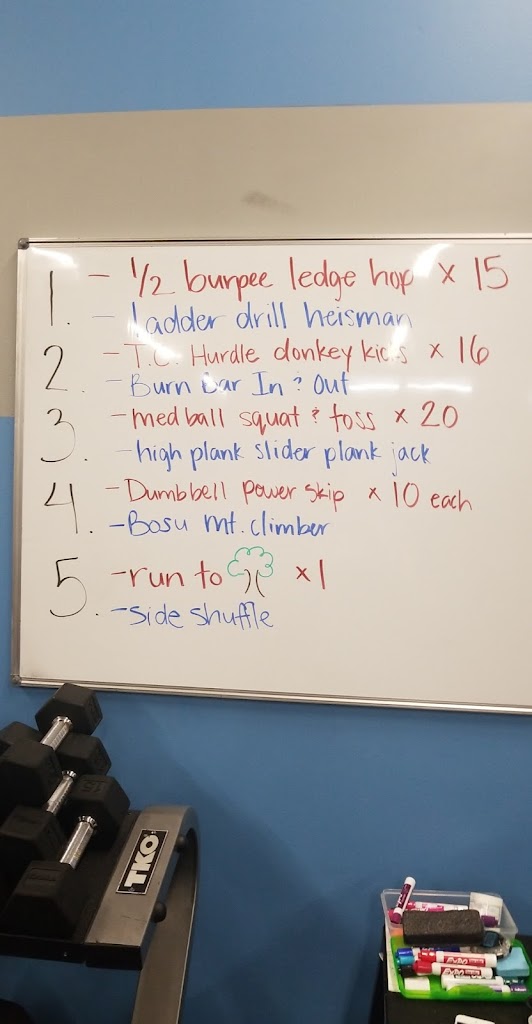 1. - 1/2 burpee ledge hop x 15
- ladder drill heisman
2. - T.C. Hurdle donkey kicks x 16
- Burn bar In & Out
3. - med ball squat & toss x 20
- high plank slider plank jack
4. - Dumbbell power skip x 10 each
- Bosu mt. climber
5. - run to x 1
- side shuffle
TKO
EXPO
EXPO